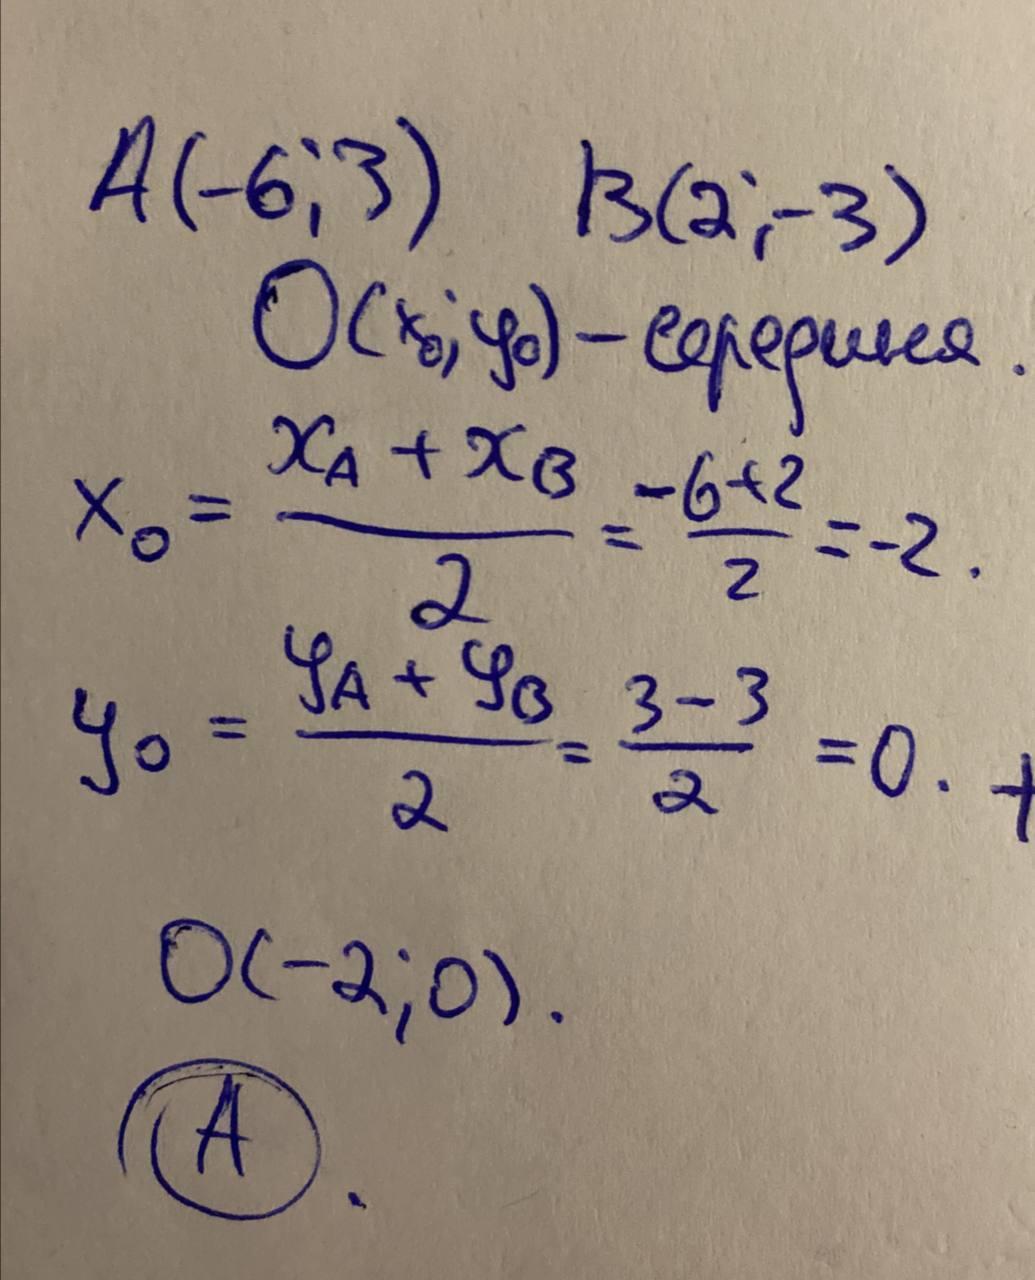 A(-6;3) B(2;-3)
O(x₀;y₀) - середина.
x₀ = (x_A + x_B)/2 = (-6+2)/2 = -2.
y₀ = (y_A + y_B)/2 = (3-3)/2 = 0. +
O(-2;0).
A.